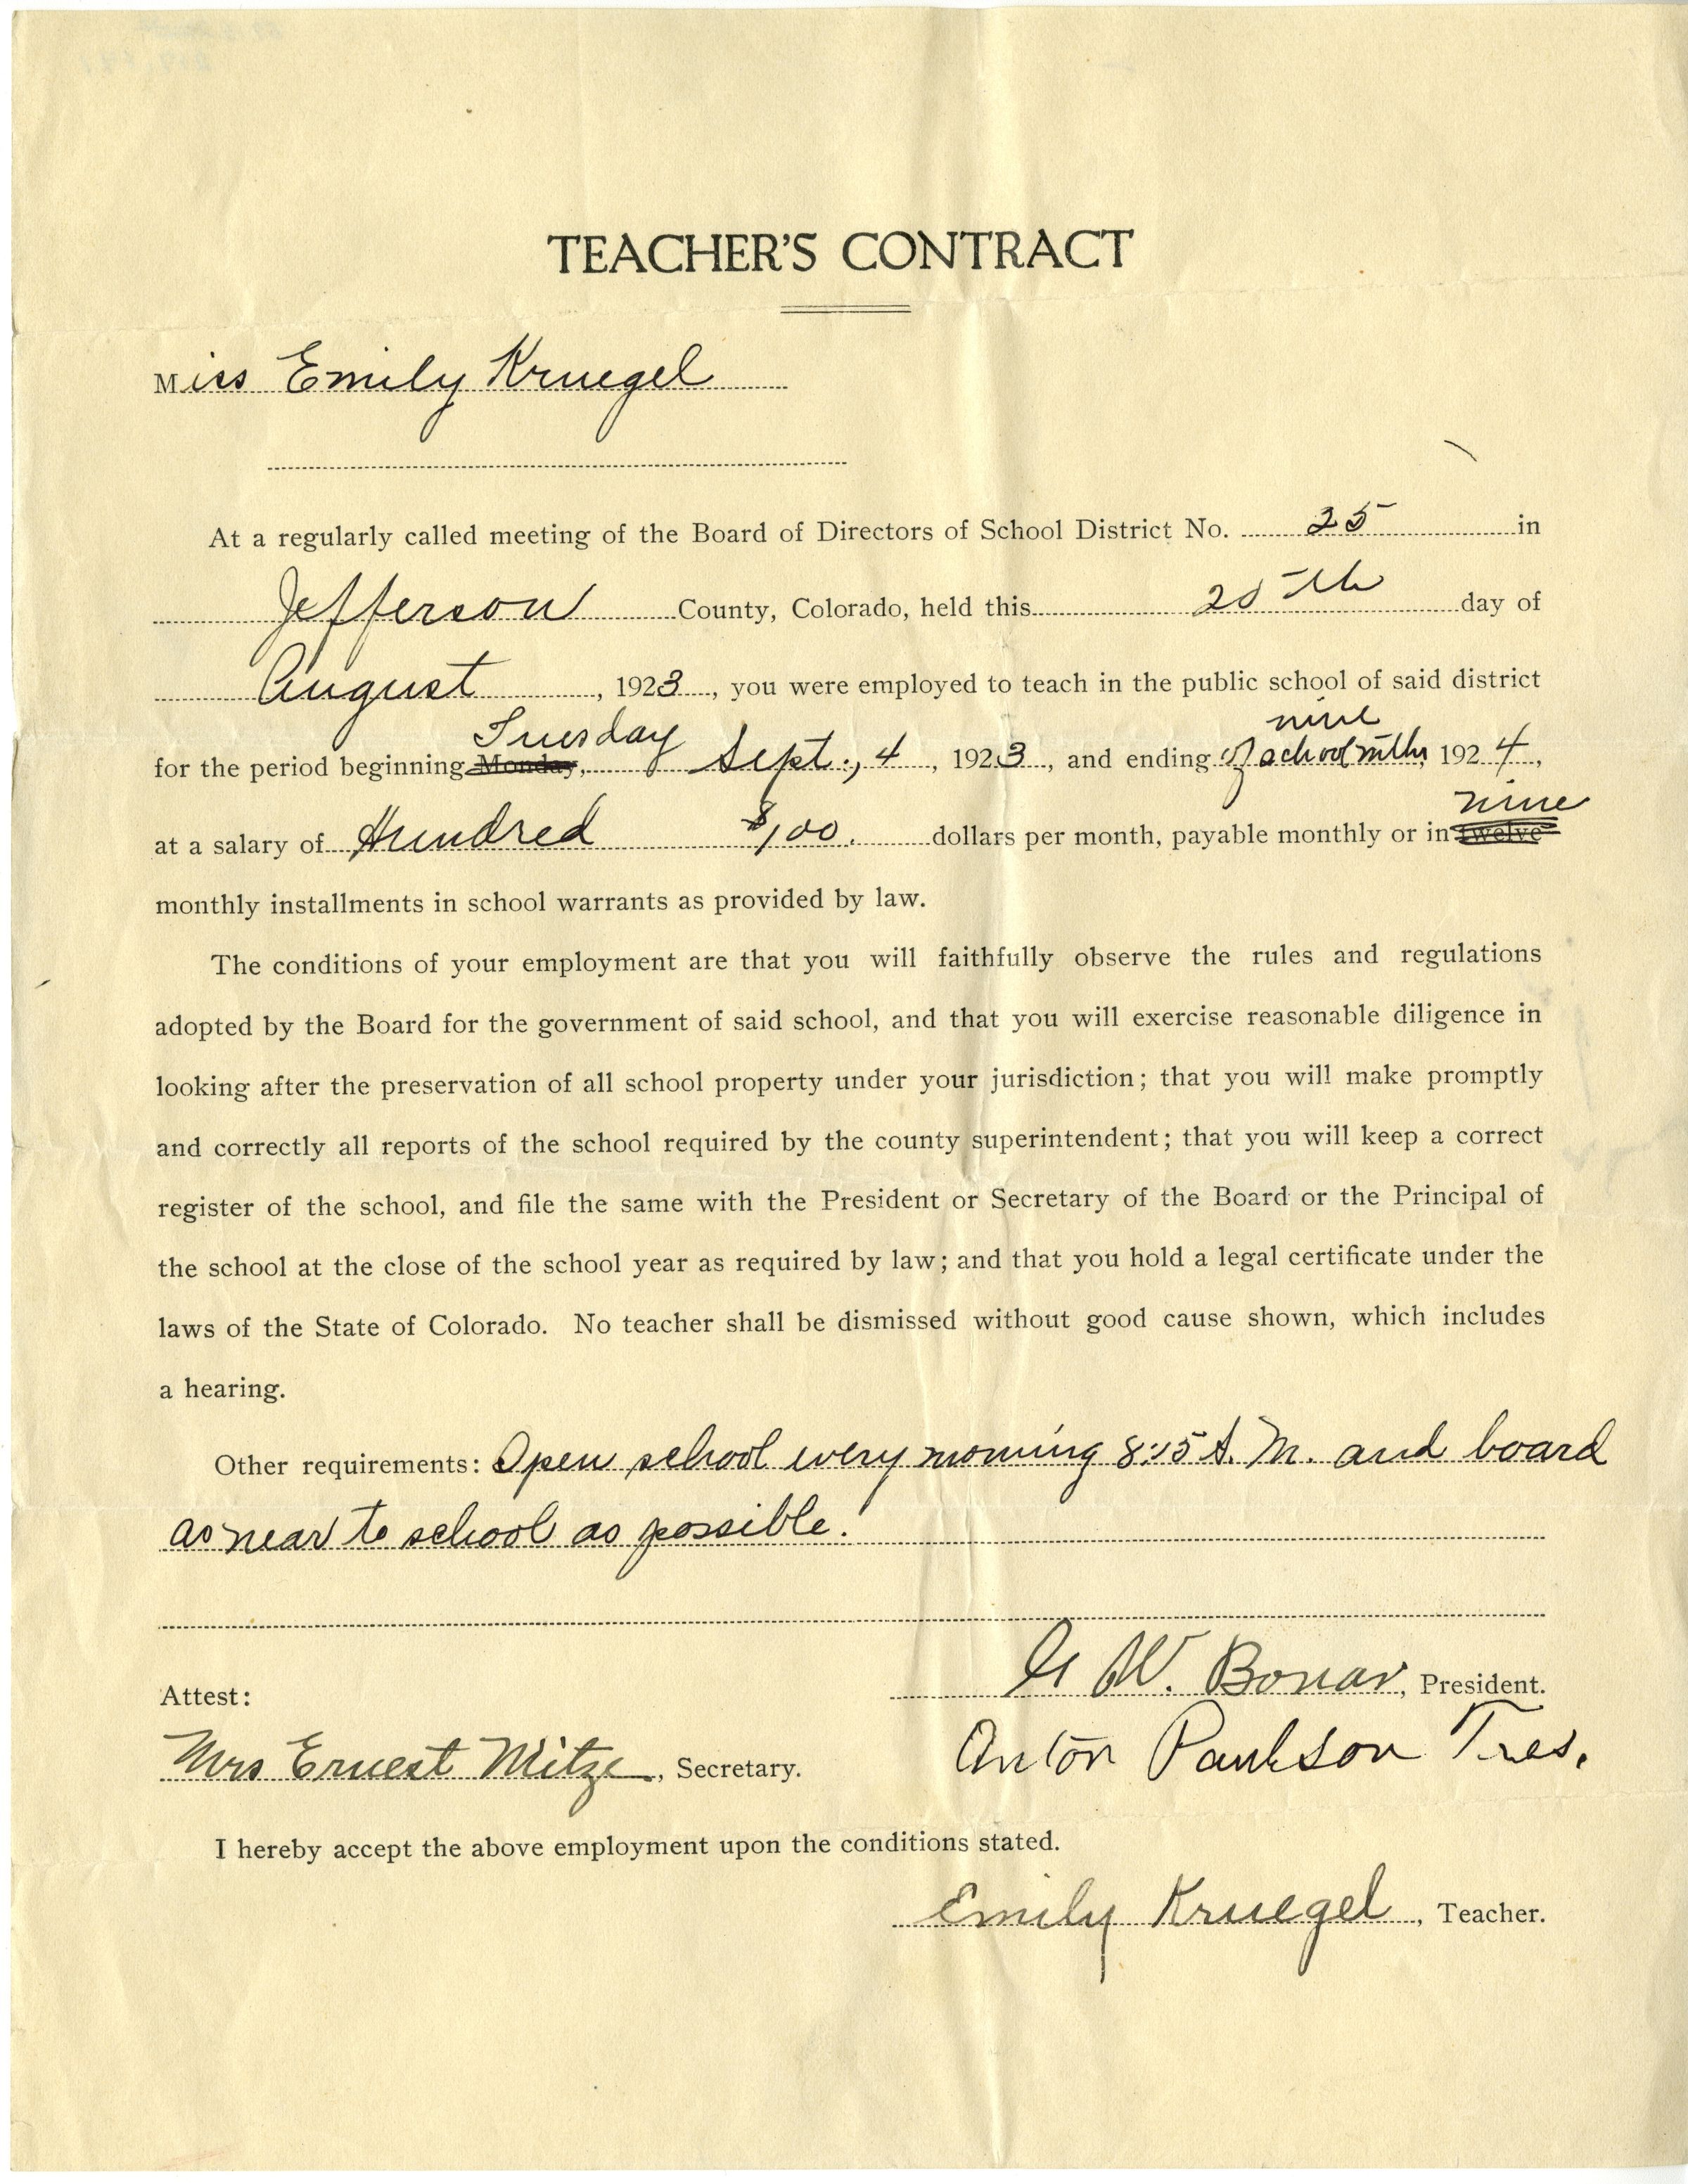 TEACHER'S CONTRACT
Miss Emily Kruegel
At a regularly called meeting of the Board of Directors of School District No. 25 in
Jefferson County, Colorado, held this 25th day of
August, 1923, you were employed to teach in the public school of said district
for the period beginning Monday, Tuesday Sept., 4, 1923, and ending of nine school mths, 1924,
at a salary of Hundred $100. dollars per month, payable monthly or in twelve nine
monthly installments in school warrants as provided by law.
The conditions of your employment are that you will faithfully observe the rules and regulations
adopted by the Board for the government of said school, and that you will exercise reasonable diligence in
looking after the preservation of all school property under your jurisdiction; that you will make promptly
and correctly all reports of the school required by the county superintendent; that you will keep a correct
register of the school, and file the same with the President or Secretary of the Board or the Principal of
the school at the close of the school year as required by law; and that you hold a legal certificate under the
laws of the State of Colorado. No teacher shall be dismissed without good cause shown, which includes
a hearing.
Other requirements: Open school every morning 8:15 A. M. and board
as near to school as possible.
G W. Bonar, President.
Attest:
Anton Paulson Tres.
Mrs Ernest Mitze, Secretary.
I hereby accept the above employment upon the conditions stated.
Emily Kruegel, Teacher.